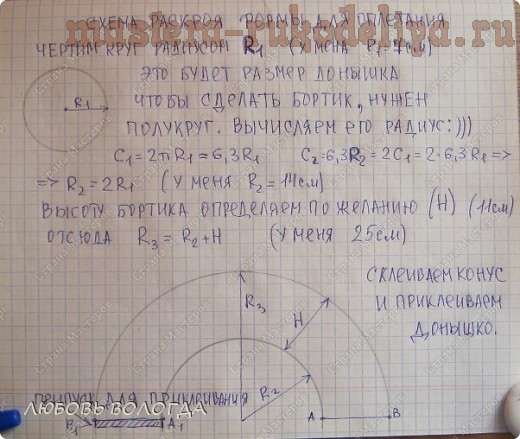 СХЕМА РАСКРОЯ ФОРМЫ ДЛЯ ОПЛЕТАНИЯ
master-rukodelya.ru
ЧЕРТИМ КРУГ РАДИУСОМ R₁ (У МЕНЯ R₁-7см)
ЭТО БУДЕТ РАЗМЕР ДОНЫШКА
R₁
ЧТОБЫ СДЕЛАТЬ БОРТИК, НУЖЕН
ПОЛУКРУГ. ВЫЧИСЛЯЕМ ЕГО РАДИУС:)))
C₁=2πR₁=6,3R₁ C₂=6,3R₂=2C₁=2·6,3R₁=>
=> R₂=2R₁ (У МЕНЯ R₂=14см)
ВЫСОТУ БОРТИКА ОПРЕДЕЛЯЕМ ПО ЖЕЛАНИЮ (H) (11см)
ОТСЮДА R₃=R₂+H (У МЕНЯ 25см)
СКЛЕИВАЕМ КОНУС
И ПРИКЛЕИВАЕМ
ДОНЫШКО.
R₃
H
R₂
ПРИПУСК ДЛЯ ПРИКЛЕИВАНИЯ
ЛЮБОВЬ ВОЛОГДА
B₁ A₁ A B